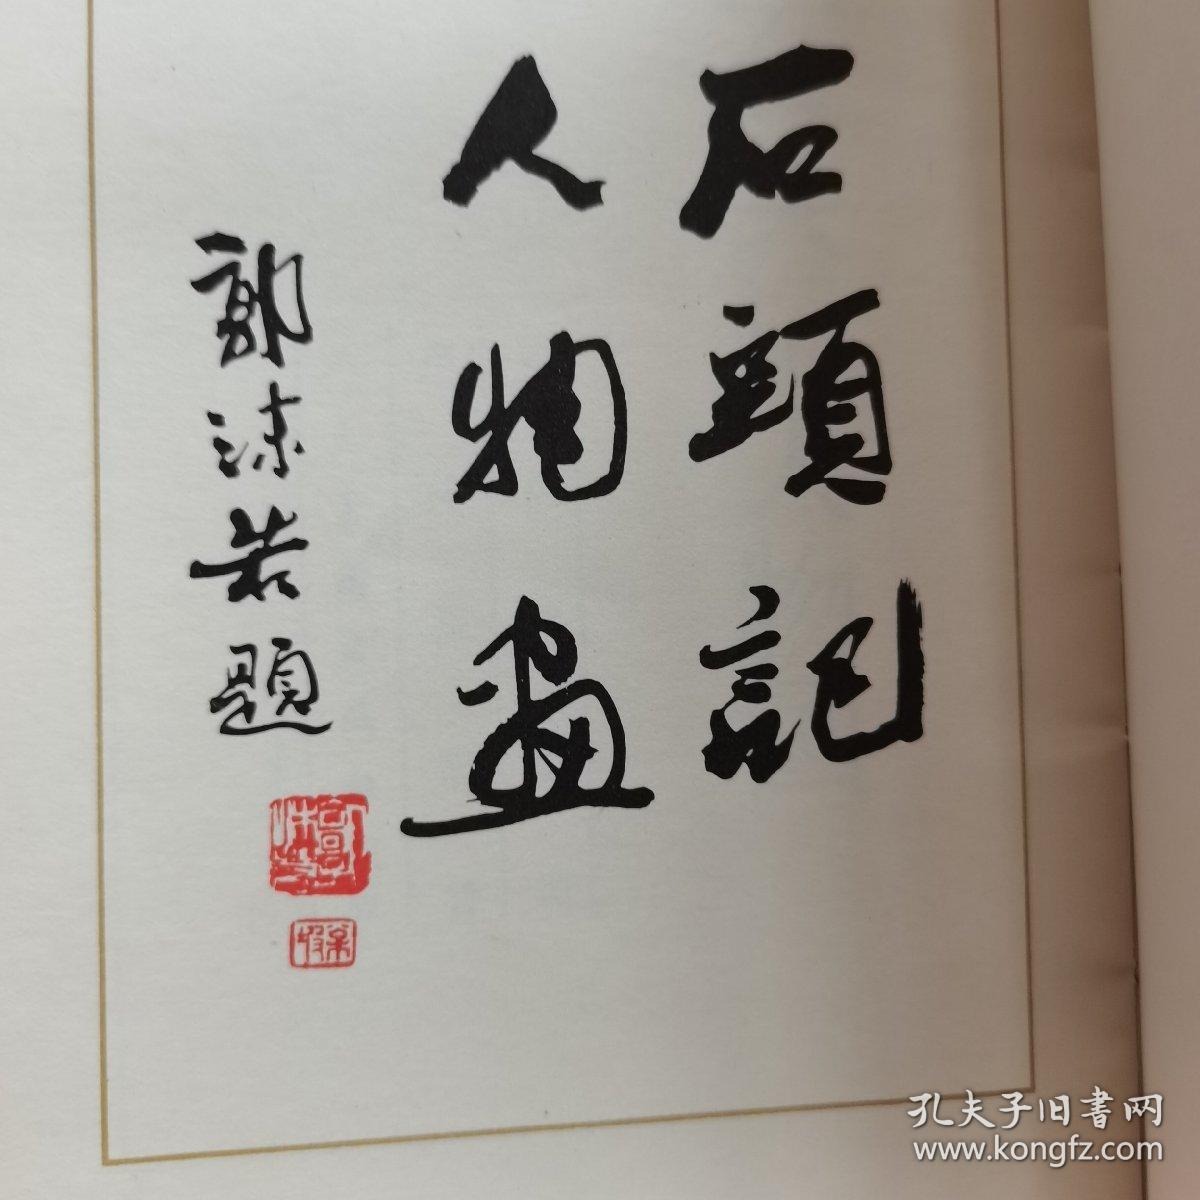 石頭記
人物畫
郭沫若題
孔夫子旧書网
www.kongfz.com